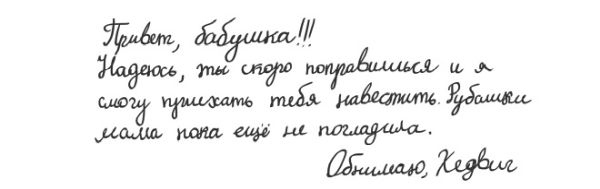 Привет, бабушка!!!
Надеюсь, ты скоро поправишься и я
смогу приехать тебя навестить. Рубашки
мама пока ещё не погладила.
Обнимаю, Хедвиг